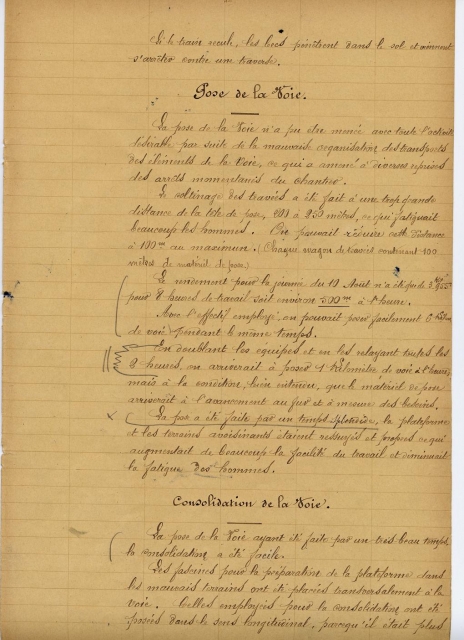 Si le train recule, les becs pénètrent dans le sol et viennent
s'arrêter contre une traverse.
Pose de la Voie.
La pose de la Voie n'a pu être menée avec toute l'activité
désirable par suite de la mauvaise organisation des transports
des éléments de la Voie, ce qui a amené à diverses reprises
des arrêts momentanés du chantier.
Le coltinage des travées a été fait à une trop grande
distance de la tête de pose, 200 à 250 mètres, ce qui fatiguait
beaucoup les hommes. On pouvait réduire cette distance
à 100m au maximum. (Chaque wagon de travées contenant 100
mètres de matériel de pose)
Le rendement pour la journée du 10 Août n'a été que de
pour 8 heures de travail soit environ 500m à l'heure.
Avec l'effectif employé, on pouvait poser facilement
de voie pendant le même temps.
En doublant les équipes et en les relayant toutes les
8 heures, on arriverait à poser 1 Kilomètre de voie à l'heure,
mais à la condition, bien entendu, que le matériel de pose
arriverait à l'avancement au fur et à mesure des besoins.
La pose a été faite par un temps splendide, la plateforme
et les terrains avoisinants étaient ressuyés et propres ce qui
augmentait de beaucoup la facilité du travail et diminuait
la fatigue des hommes.
Consolidation de la Voie.
La pose de la Voie ayant été faite par un très beau temps
la consolidation a été facile.
Des fascines pour la préparation de la plateforme dans
les mauvais terrains ont été placées transversalement à la
voie. Celles employées pour la consolidation ont été
posées dans le sens longitudinal, parcequ'il était plus